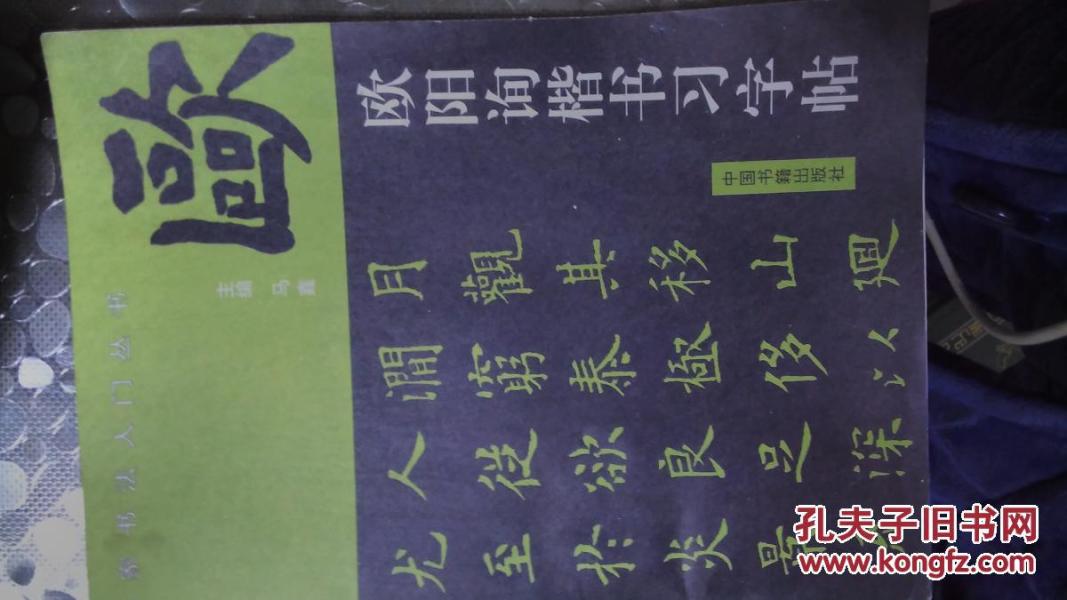 书法入门丛书
歐
主编
马鑫
欧阳询楷书习字帖
中国书籍出版社
月觀其移山廻
澗窮泰極侈以
人從欲良足深
尤至於炎景
孔夫子旧书网
www.kongfz.com